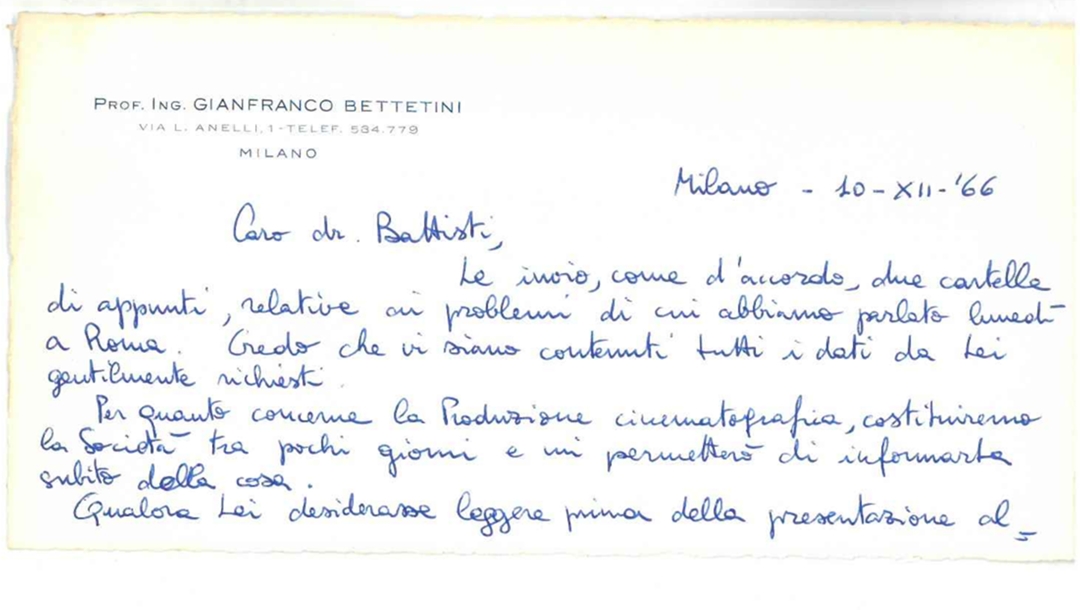 PROF. ING. GIANFRANCO BETTETINI
VIA L. ANELLI, 1 - TELEF. 534.779
MILANO
Milano - 10-XII-'66
Caro dr. Battisti,
Le invio, come d'accordo, due cartelle
di appunti, relative ai problemi di cui abbiamo parlato lunedì
a Roma. Credo che vi siano contenuti tutti i dati da Lei
gentilmente richiesti.
Per quanto concerne la Produzione cinematografica, costituiremo
la Società tra pochi giorni e mi permetterò di informarLa
subito della cosa.
Qualora Lei desiderasse leggere prima della presentazione al-